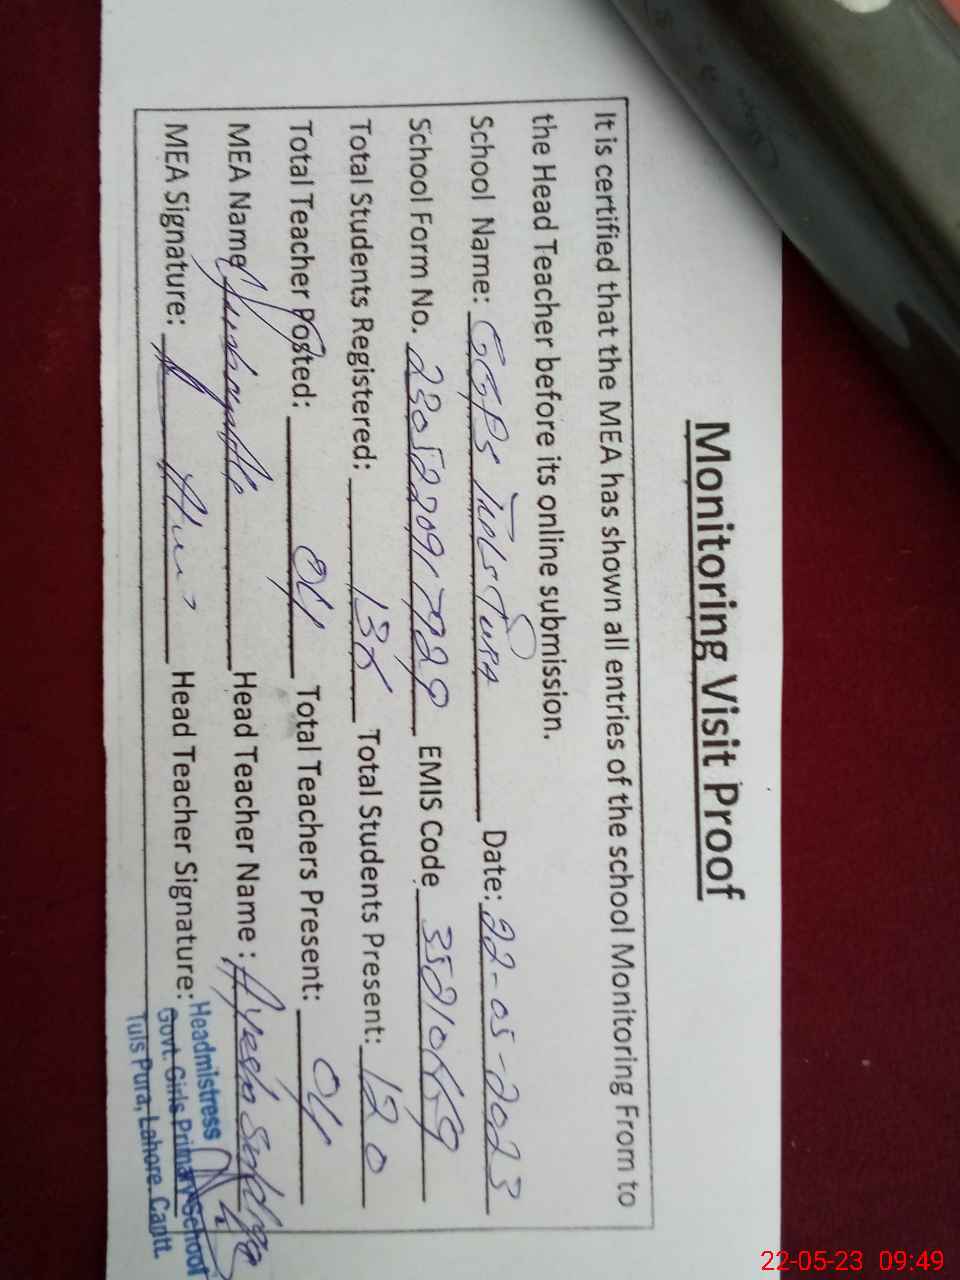 Monitoring Visit Proof
It is certified that the MEA has shown all entries of the school Monitoring From to
the Head Teacher before its online submission.
School Name: GGPS Tuls Pura Date: 22-05-2023
School Form No. EMIS Code
Total Students Registered: Total Students Present: 120
Total Teacher Posted: 04 Total Teachers Present: 04
MEA Name Head Teacher Name : Ayesha
MEA Signature: Head Teacher Signature:
Headmistress
Govt. Girls Primary School
Tuls Pura, Lahore Cantt.
22-05-23 09:49